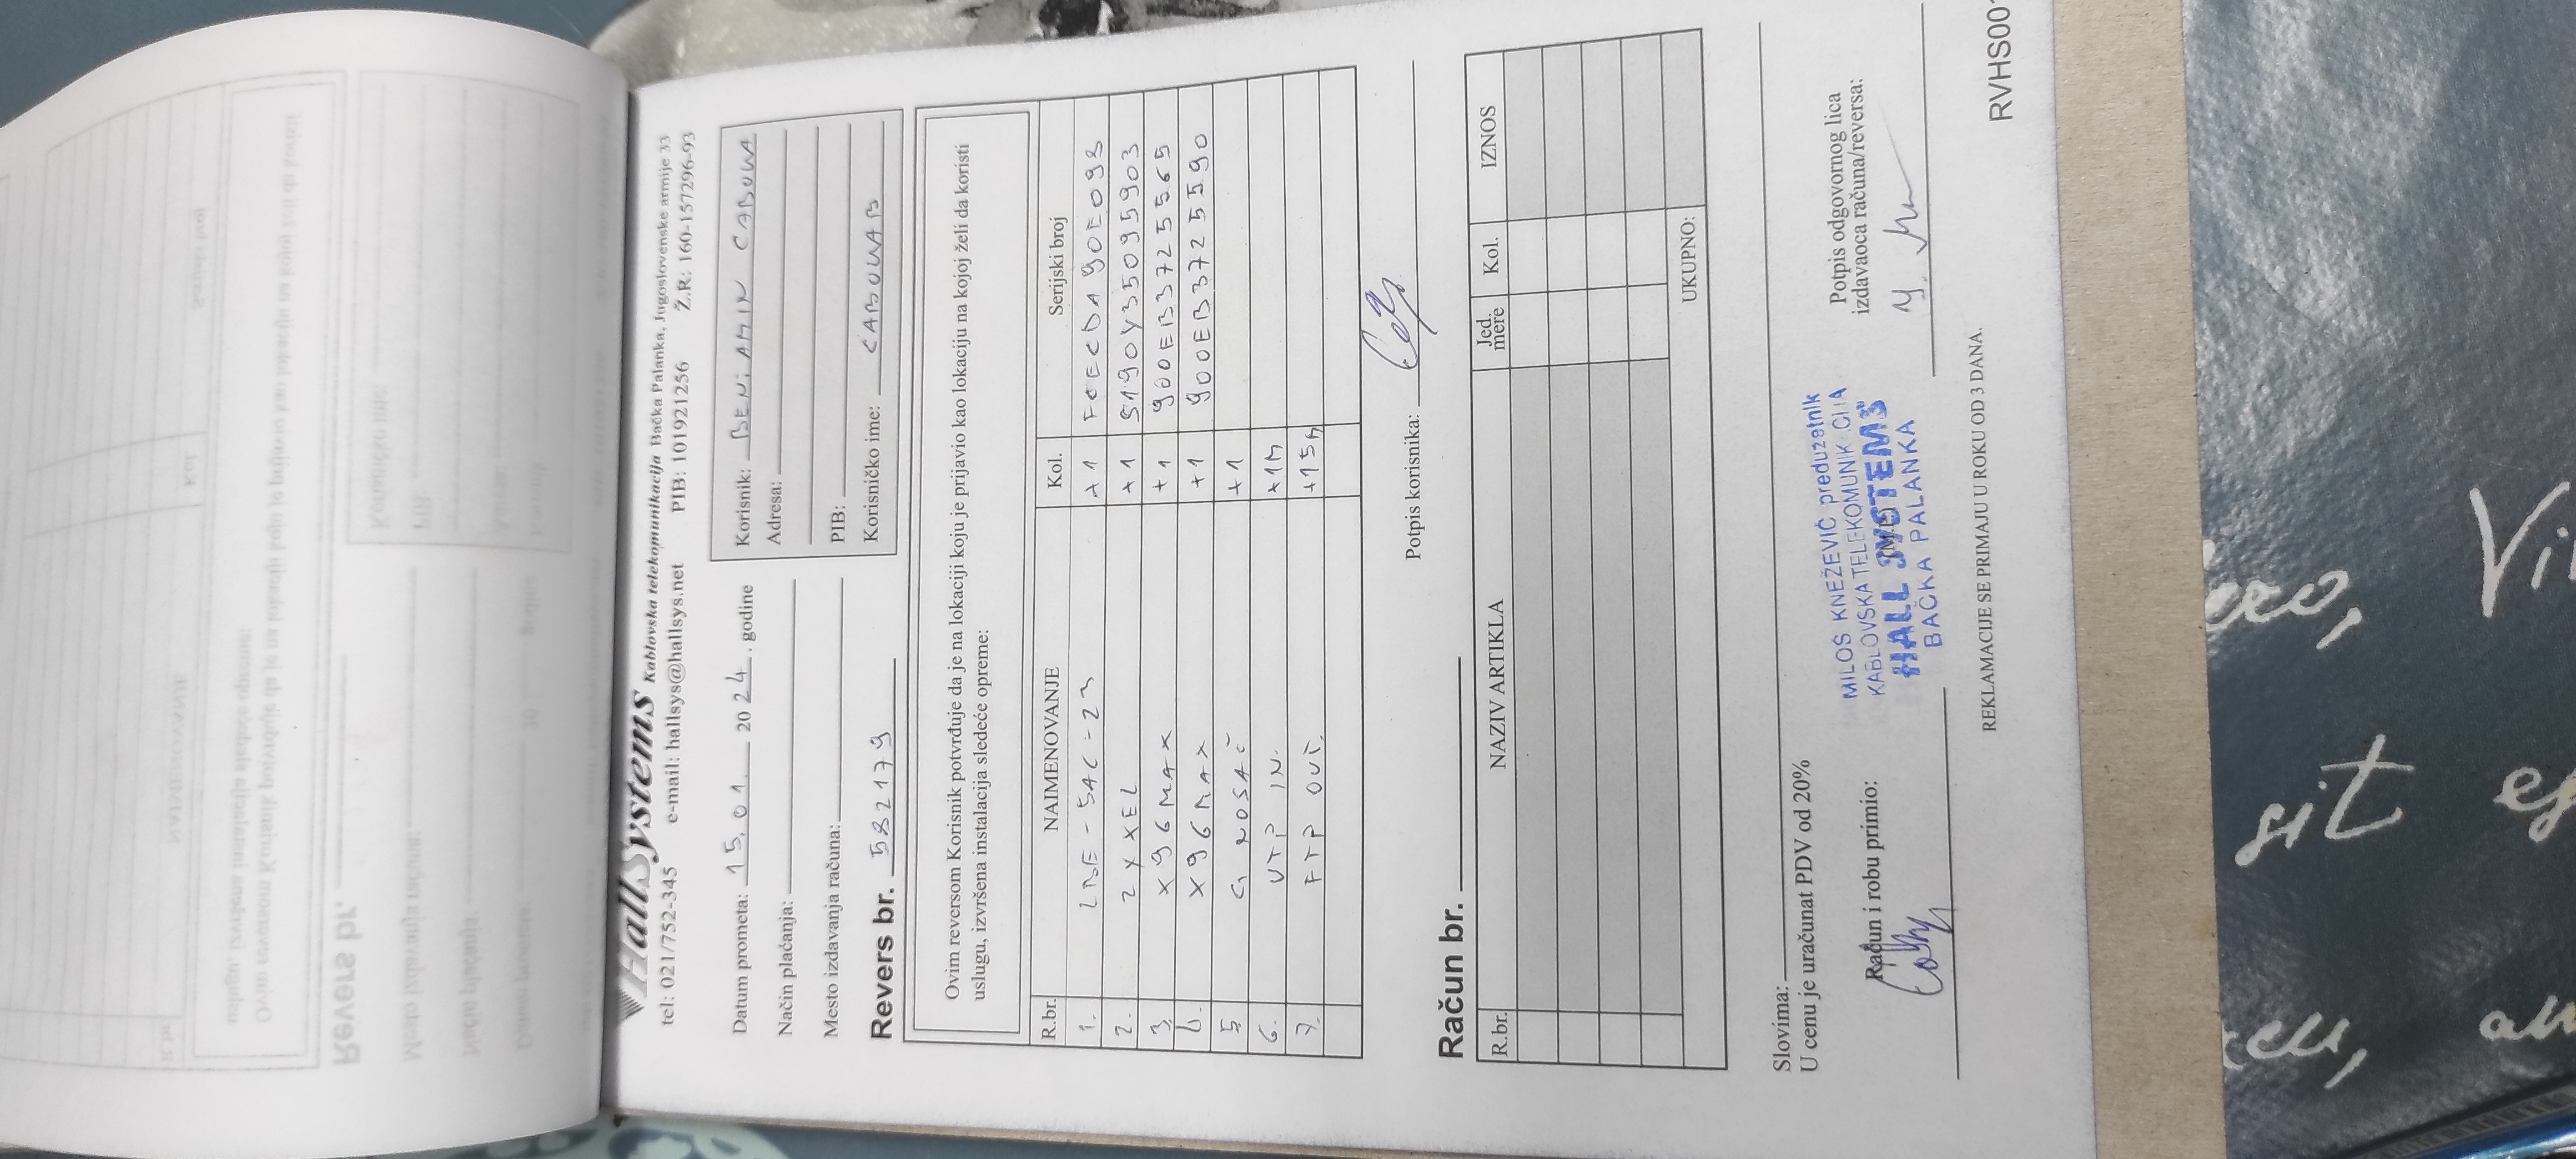 HallSystems Kablovska telekomunikacija Bačka Palanka, Jugoslovenske armije 33
tel: 021/752-345 e-mail: hallsys@hallsys.net PIB: 101921256 Ž.R.: 160-157296-93
Datum prometa: 15.01. 2024. godine
Način plaćanja:
Mesto izdavanja računa:
Revers br. 582179
Korisnik: BENIAMIN CABOUNA
Adresa:
PIB:
Korisničko ime: CABOUNAB
Ovim reversom Korisnik potvrđuje da je na lokaciji koju je prijavio kao lokaciju na kojoj želi da koristi
uslugu, izvršena instalacija sledeće opreme:
R.br. NAIMENOVANJE Kol. Serijski broj
1. LBE-5AC-23 +1 F0ECDA90E093
2. ZYXEL +1 S190Y35095903
3. X96MAX +1 900EB3725565
4. X96MAX +1 900EB3725590
5 G NOSAČ +1
6. UTP IN. +1M
7. FTP OUT. +15M
Potpis korisnika:
Račun br.
R.br. NAZIV ARTIKLA Jed. mere Kol. IZNOS
UKUPNO:
Slovima:
U cenu je uračunat PDV od 20%
Račun i robu primio:
MILOS KNEŽEVIĆ preduzetnik
KABLOVSKA TELEKOMUNIK CIJA
HALL SYSTEMS
BAČKA PALANKA
Potpis odgovornog lica
izdavaoca računa/reversa:
REKLAMACIJE SE PRIMAJU U ROKU OD 3 DANA.
RVHS001
sit